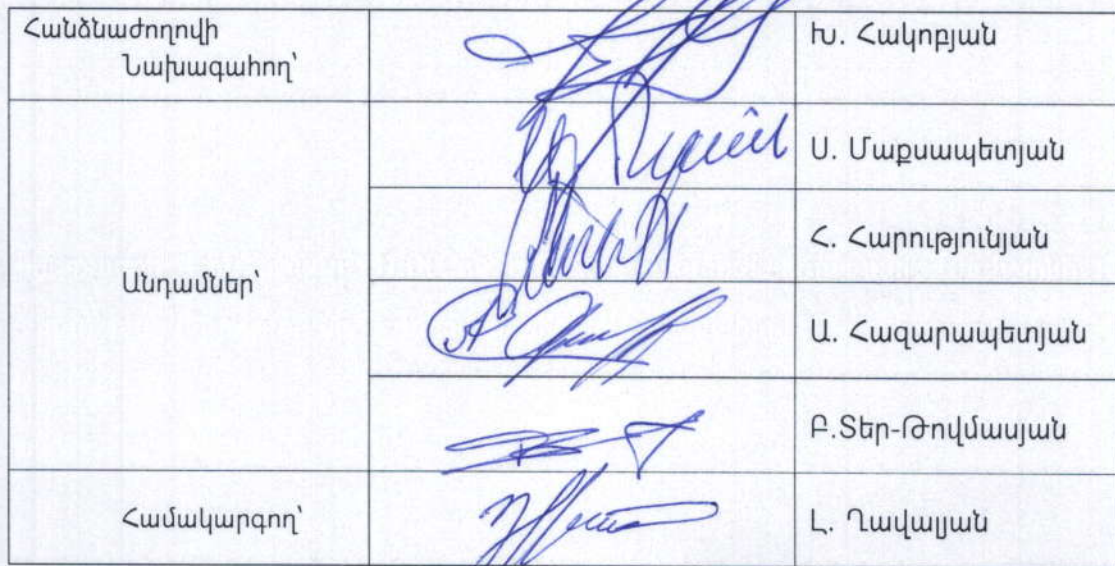 Հանձնաժողովի
Նախագահող՝
Խ. Հակոբյան
Ս. Մաքսապետյան
Հ. Հարությունյան
Անդամներ՝
Ա. Հազարապետյան
Բ.Տեր-Թովմասյան
Համակարգող՝
Լ. Ղավալյան